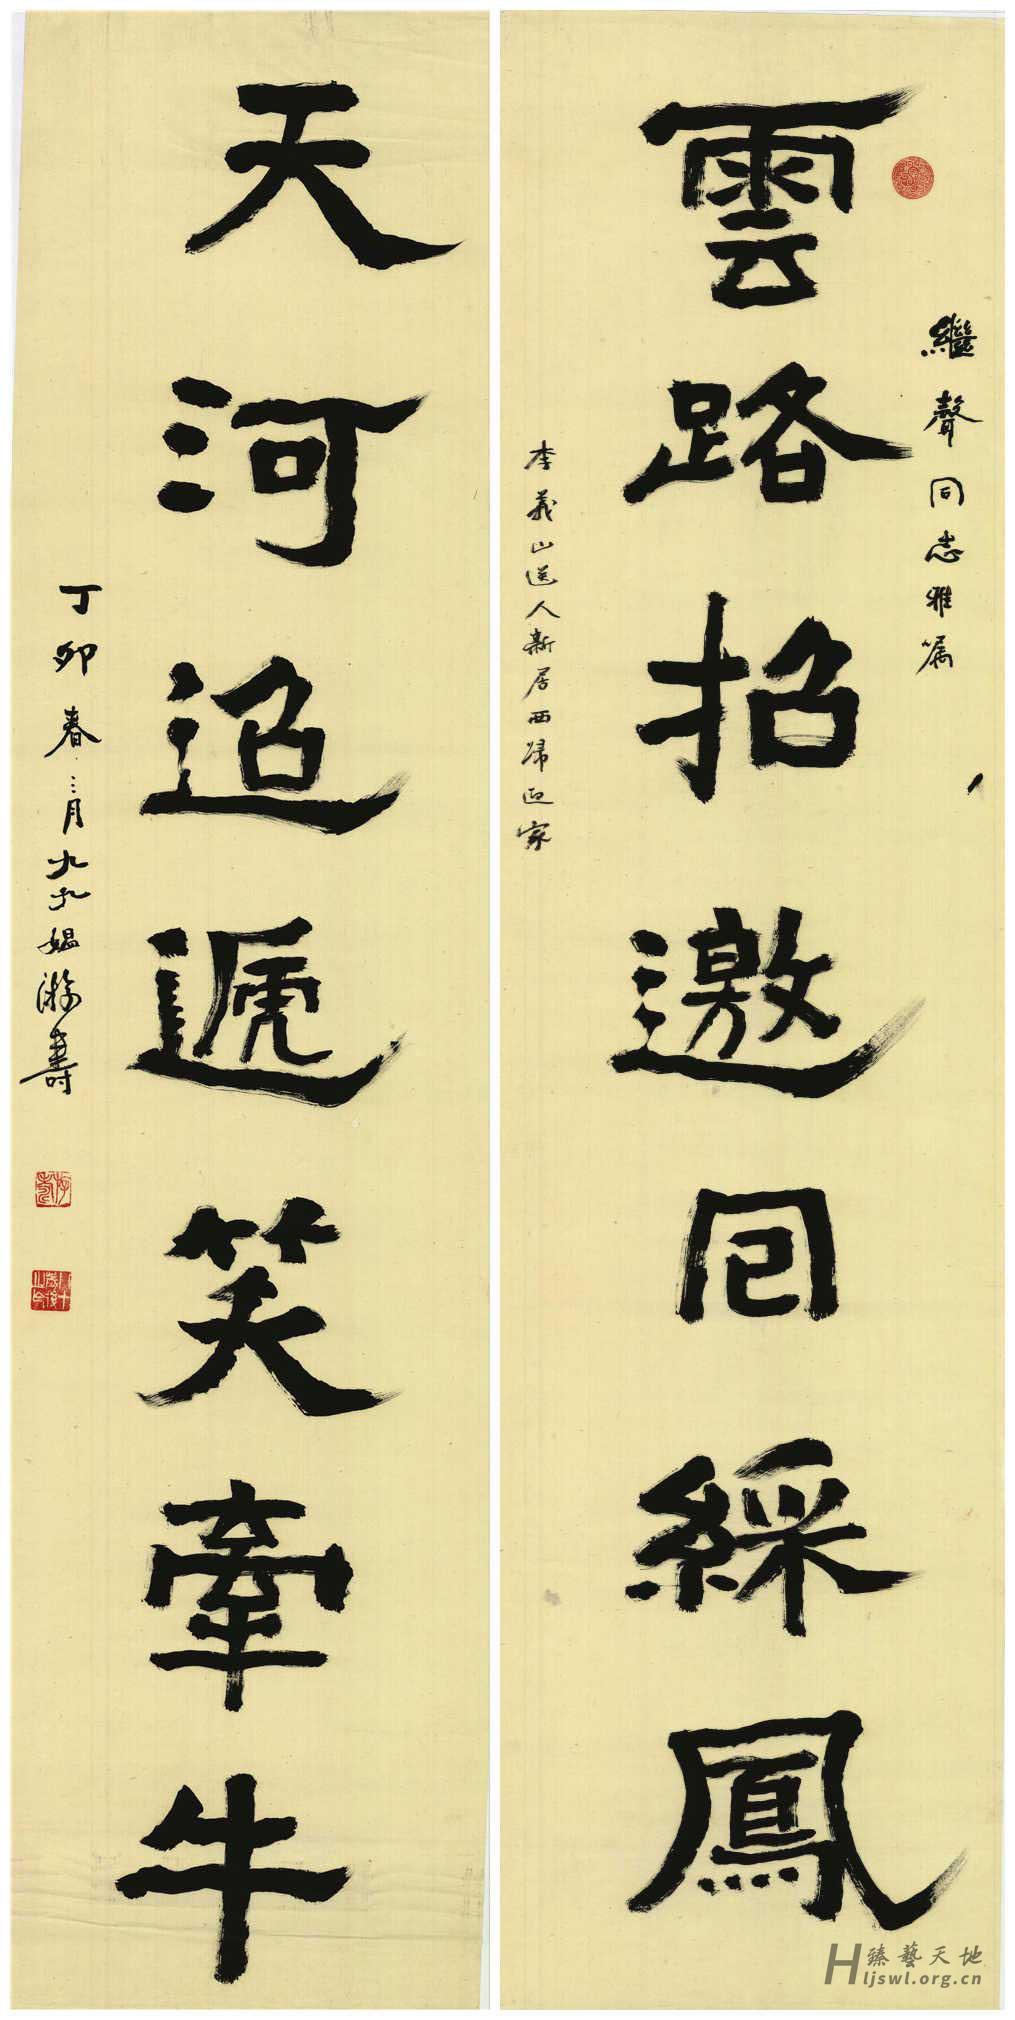 繼聲同志雅嘱
雲路招邀囘綵鳳
李義山送人新居西歸迎家
天河迢遞笑牽牛
丁卯春三月九媪游壽
H臻藝天地
ljswl.org.cn